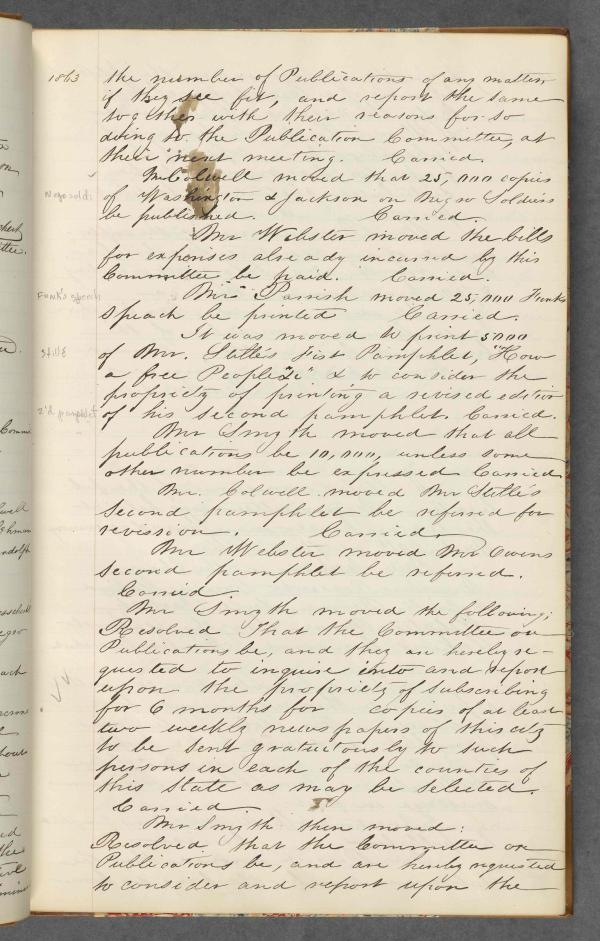 1863
the number of Publications of any matter,
if they see fit, and report the same
together with their reasons for so
doing to the Publication Committee, at
their next meeting. Carried.
Mr Colwell moved that 25,000 copies
of Washington & Jackson on Negro Soldiers
be published. Carried.
Mr Webster moved the bills
for expenses already incurred by this
Committee be paid. Carried.
Funk's speech
Mr Parrish moved 25,000 Funks
speach be printed Carried.
It was moved to print 5000
Stillé
of Mr. Stille's First Pamphlet, "How
a free People &c" & to consider the
propriety of printing a revised edition
2'd pamphlet
of his second pamphlet. Carried.
Mr Smyth moved that all
publications be 10,000, unless some
other number be expressed Carried
Mr. Colwell moved Mr Stille's
second pamphlet be referred for
revission. Carried
Mr Webster moved Mr Owens
second pamphlet be referred.
Carried.
Mr Smyth moved the following;
Resolved That the Committee on
Publications be, and they are hereby re-
quested to inquire into and report
upon the propriety of Subscribing
for 6 months for copies of at least
two weekly newspapers of this city
to be sent gratuitously to such
persons in each of the counties of
this State as may be selected.
Carried.
Mr Smyth then moved:
Resolved that the Committee on
Publications be, and are hereby requested
to consider and report upon the